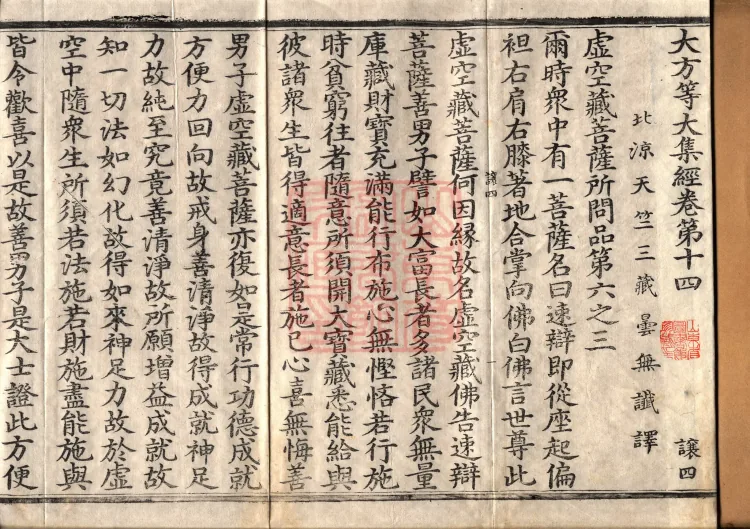 大方等大集經卷第十四
譲四
北涼天竺三藏曇無讖譯
虛空藏菩薩所問品第六之三
爾時衆中有一菩薩名曰速辯即從座起偏
袒右肩右膝著地合掌向佛白佛言世尊此
虛空藏菩薩何因緣故名虛空藏佛告速辯
譲四
菩薩善男子譬如大富長者多諸民衆無量
庫藏財寶充滿能行布施心無慳悋若行施
時貧窮往者隨意所須開大寶藏悉能給與
彼諸衆生皆得適意長者施已心喜無悔善
男子虛空藏菩薩亦復如是常行功德成就
方便力回向故戒身善清淨故得成就神足
力故純至究竟善清淨故所願增益成就故
知一切法如幻化故得如來神足力故於虛
空中隨衆生所須若法施若財施盡能施與
皆令歡喜以是故善男子是大士證此方便